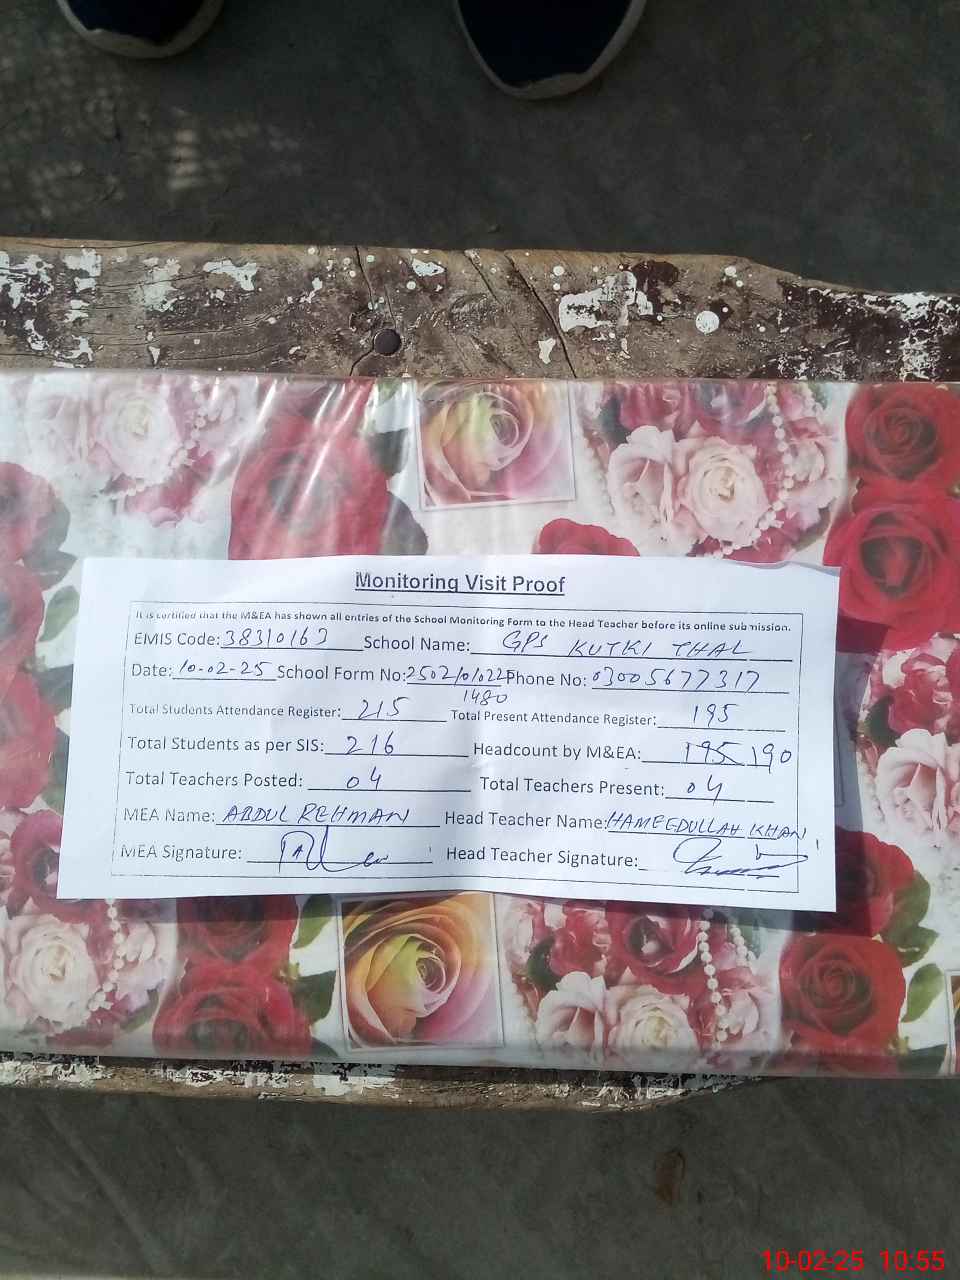 Monitoring Visit Proof
It is certified that the M&EA has shown all entries of the School Monitoring Form to the Head Teacher before its online submission.
EMIS Code: 38310163 School Name: GPS KUTKI THAL
Date: 10-02-25 School Form No: 2502101022 Phone No: 03005677317
1480
Total Students Attendance Register: 215 Total Present Attendance Register: 195
Total Students as per SIS: 216 Headcount by M&EA: 195 190
Total Teachers Posted: 04 Total Teachers Present: 04
MEA Name: ABDUL REHMAN Head Teacher Name: HAMEEDULLAH KHAN
MEA Signature: Head Teacher Signature:
10-02-25 10:55